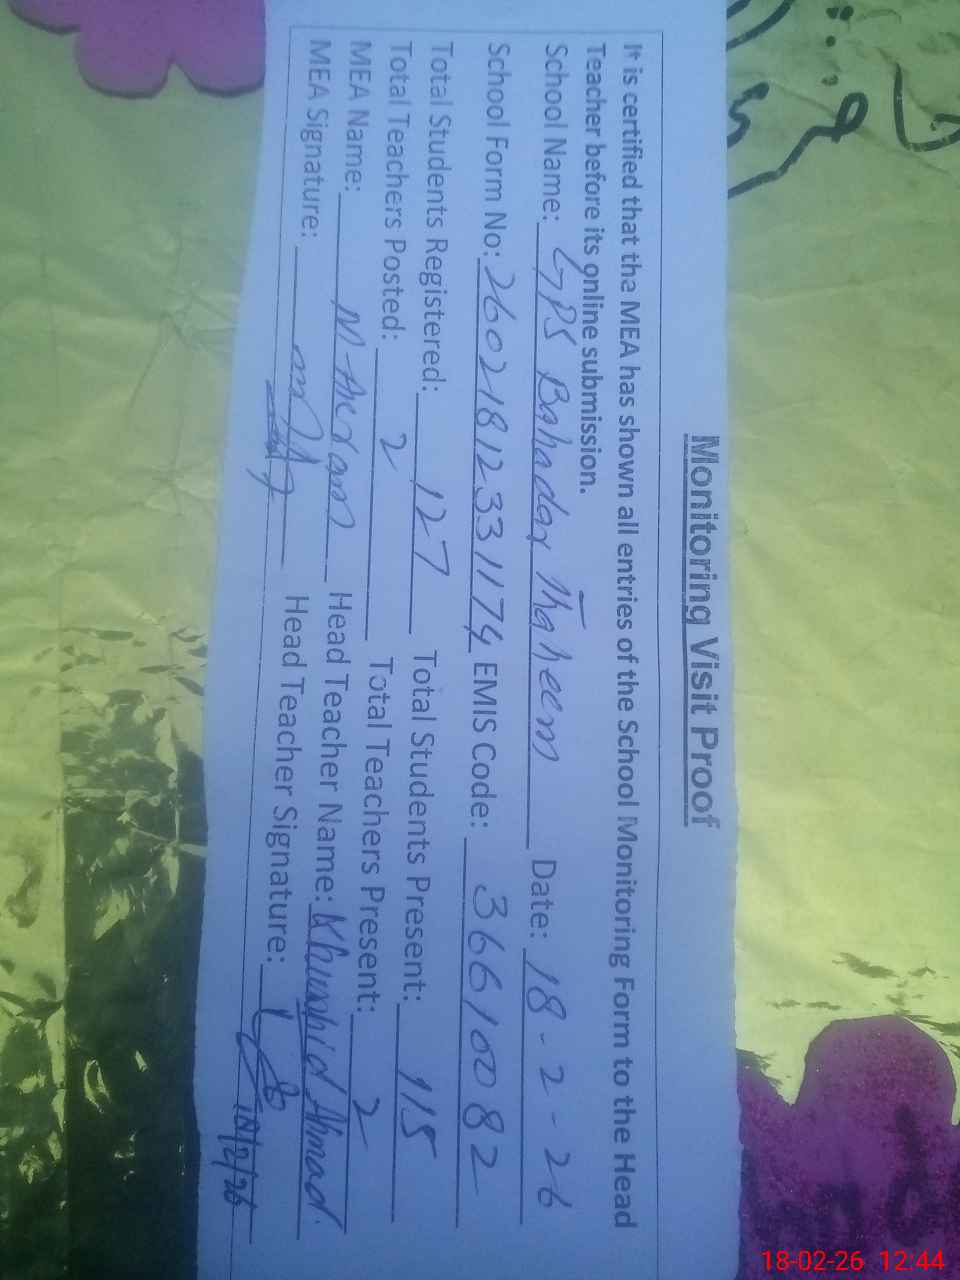 Monitoring Visit Proof
It is certified that tha MEA has shown all entries of the School Monitoring Form to the Head
Teacher before its online submission.
School Name: GPS Bahadar Thaheem Date: 18-2-26
School Form No: 260218123311174 EMIS Code: 36610082
Total Students Registered: 127 Total Students Present: 115
Total Teachers Posted: 2 Total Teachers Present: 2
MEA Name: M. Akram Head Teacher Name: Khurshid Ahmad
MEA Signature: Head Teacher Signature:
18/2/26
18-02-26 12:44